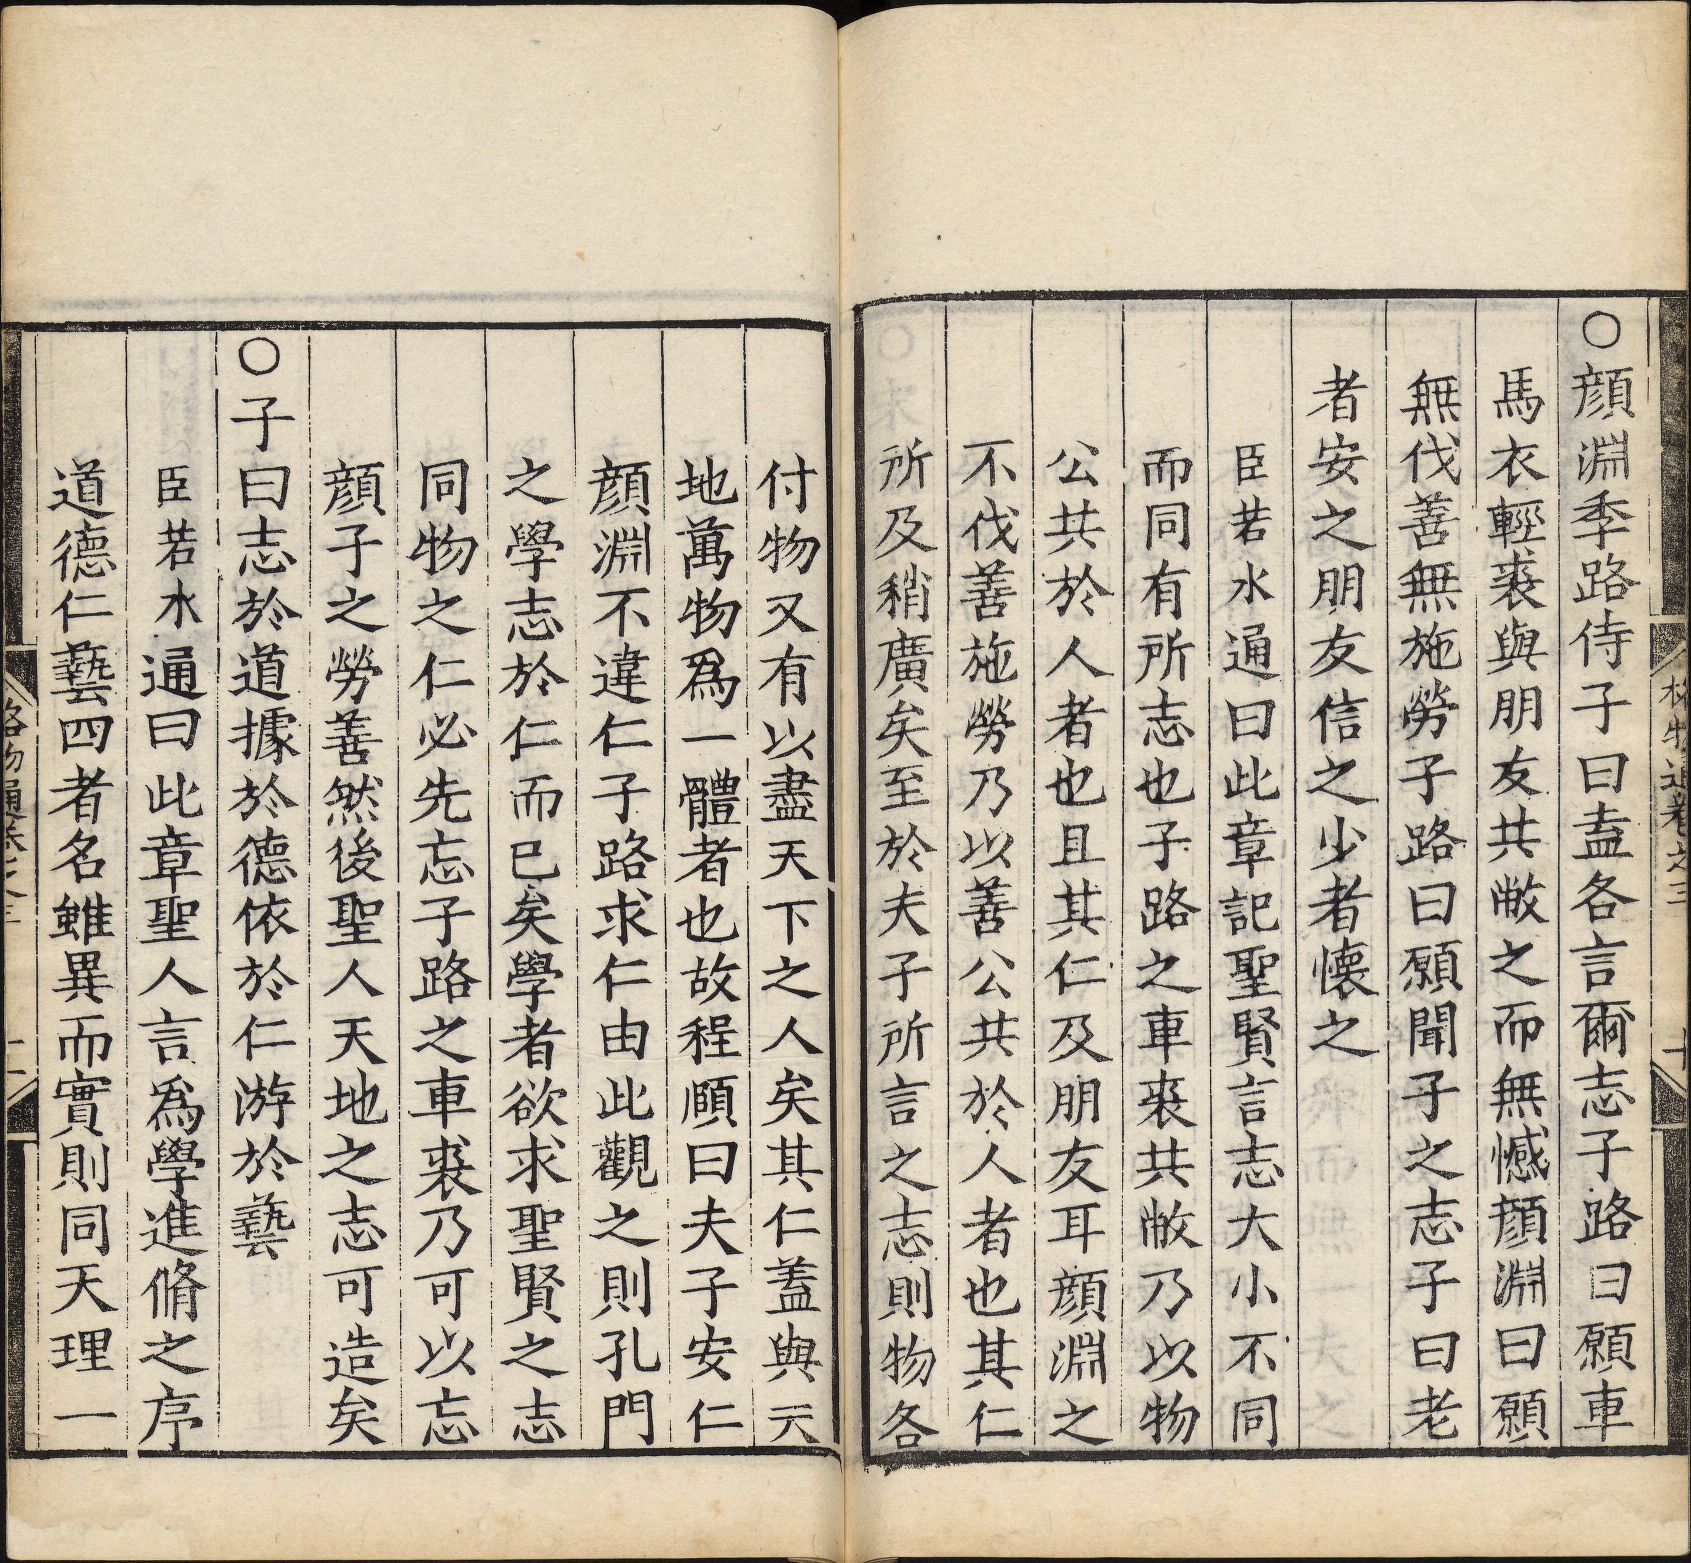 ○顔淵季路侍子曰盍各言爾志子路曰願車
馬衣輕裘與朋友共敝之而無憾顔淵曰願
無伐善無施勞子路曰願聞子之志子曰老
者安之朋友信之少者懷之
臣若水通曰此章記聖賢言志大小不同
而同有所志也子路之車裘共敝乃以物
公共於人者也且其仁及朋友耳顔淵之
不伐善施勞乃以善公共於人者也其仁
所及稍廣矣至於夫子所言之志則物各
付物又有以盡天下之人矣其仁蓋與天
地萬物爲一體者也故程頤曰夫子安仁
顔淵不違仁子路求仁由此觀之則孔門
之學志於仁而已矣學者欲求聖賢之志
同物之仁必先忘子路之車裘乃可以忘
顔子之勞善然後聖人天地之志可造矣
○子曰志於道據於德依於仁游於藝
臣若水通曰此章聖人言爲學進脩之序
道德仁藝四者名雖異而實則同天理一
格物通卷之三
格物通卷之三